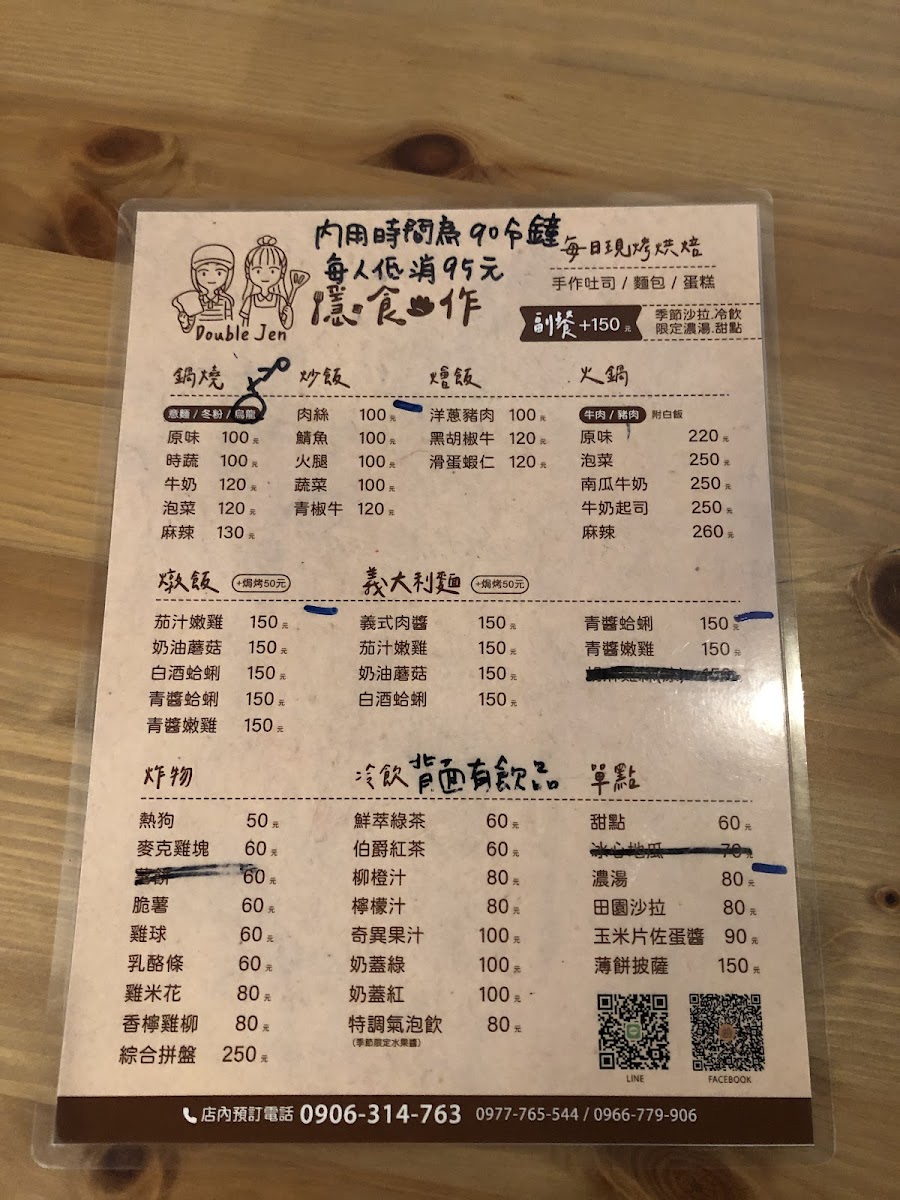 內用時間為90分鐘
每人低消95元
Double Jen
隱食作
每日現烤烘焙
手作吐司 / 麵包 / 蛋糕
副餐+150元
季節沙拉.冷飲
限定濃湯.甜點
鍋燒
意麵 / 冬粉 / 烏龍
原味 100元
時蔬 100元
牛奶 120元
泡菜 120元
麻辣 130元
炒飯
肉絲 100元
鯖魚 100元
火腿 100元
蔬菜 100元
青椒牛 120元
燴飯
洋蔥豬肉 100元
黑胡椒牛 120元
滑蛋蝦仁 120元
火鍋
牛肉 / 豬肉 附白飯
原味 220元
泡菜 250元
南瓜牛奶 250元
牛奶起司 250元
麻辣 260元
燉飯 +焗烤50元
茄汁嫩雞 150元
奶油蘑菇 150元
白酒蛤蜊 150元
青醬蛤蜊 150元
青醬嫩雞 150元
義大利麵 +焗烤50元
義式肉醬 150元
茄汁嫩雞 150元
奶油蘑菇 150元
白酒蛤蜊 150元
青醬蛤蜊 150元
青醬嫩雞 150元
150
炸物
熱狗 50元
麥克雞塊 60元
薯餅 60元
脆薯 60元
雞球 60元
乳酪條 60元
雞米花 80元
香檸雞柳 80元
綜合拼盤 250元
冷飲 背面有飲品
鮮萃綠茶 60元
伯爵紅茶 60元
柳橙汁 80元
檸檬汁 80元
奇異果汁 100元
奶蓋綠 100元
奶蓋紅 100元
特調氣泡飲 80元
(季節限定水果醬)
單點
甜點 60元
冰心地瓜 70元
濃湯 80元
田園沙拉 80元
玉米片佐蛋醬 90元
薄餅披薩 150元
LINE
FACEBOOK
店內預訂電話 0906-314-763 0977-765-544 / 0966-779-906